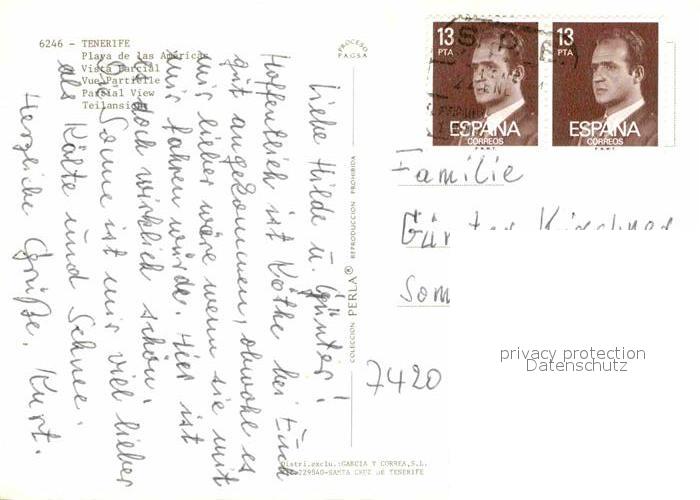 6246 - TENERIFE
Playa de las Américas
Vista Parcial
Vue Partielle
Partial View
Teilansicht
PROCESO
FAGSA
Liebe Hilde u. Günter!
Hoffentlich ist Käthe bei Euch
gut angekommen, obwohl es
mir lieber wäre wenn sie mit
mir fahren würde. Hier ist
es doch wirklich schön.
Die Sonne ist mir viel lieber
als Kälte und Schnee.
Herzliche Grüße. Kurt.
COLECCION PERLA® REPRODUCCION PROHIBIDA
Distri.exclu.:GARCIA Y CORREA,S.L.
229540-SANTA CRUZ DE TENERIFE
13
PTA
ESPAÑA
CORREOS
F.N.M.T.
13
PTA
ESPAÑA
CORREOS
F.N.M.T.
Familie
Günter Kirchner
Som
7420
privacy protection
Datenschutz